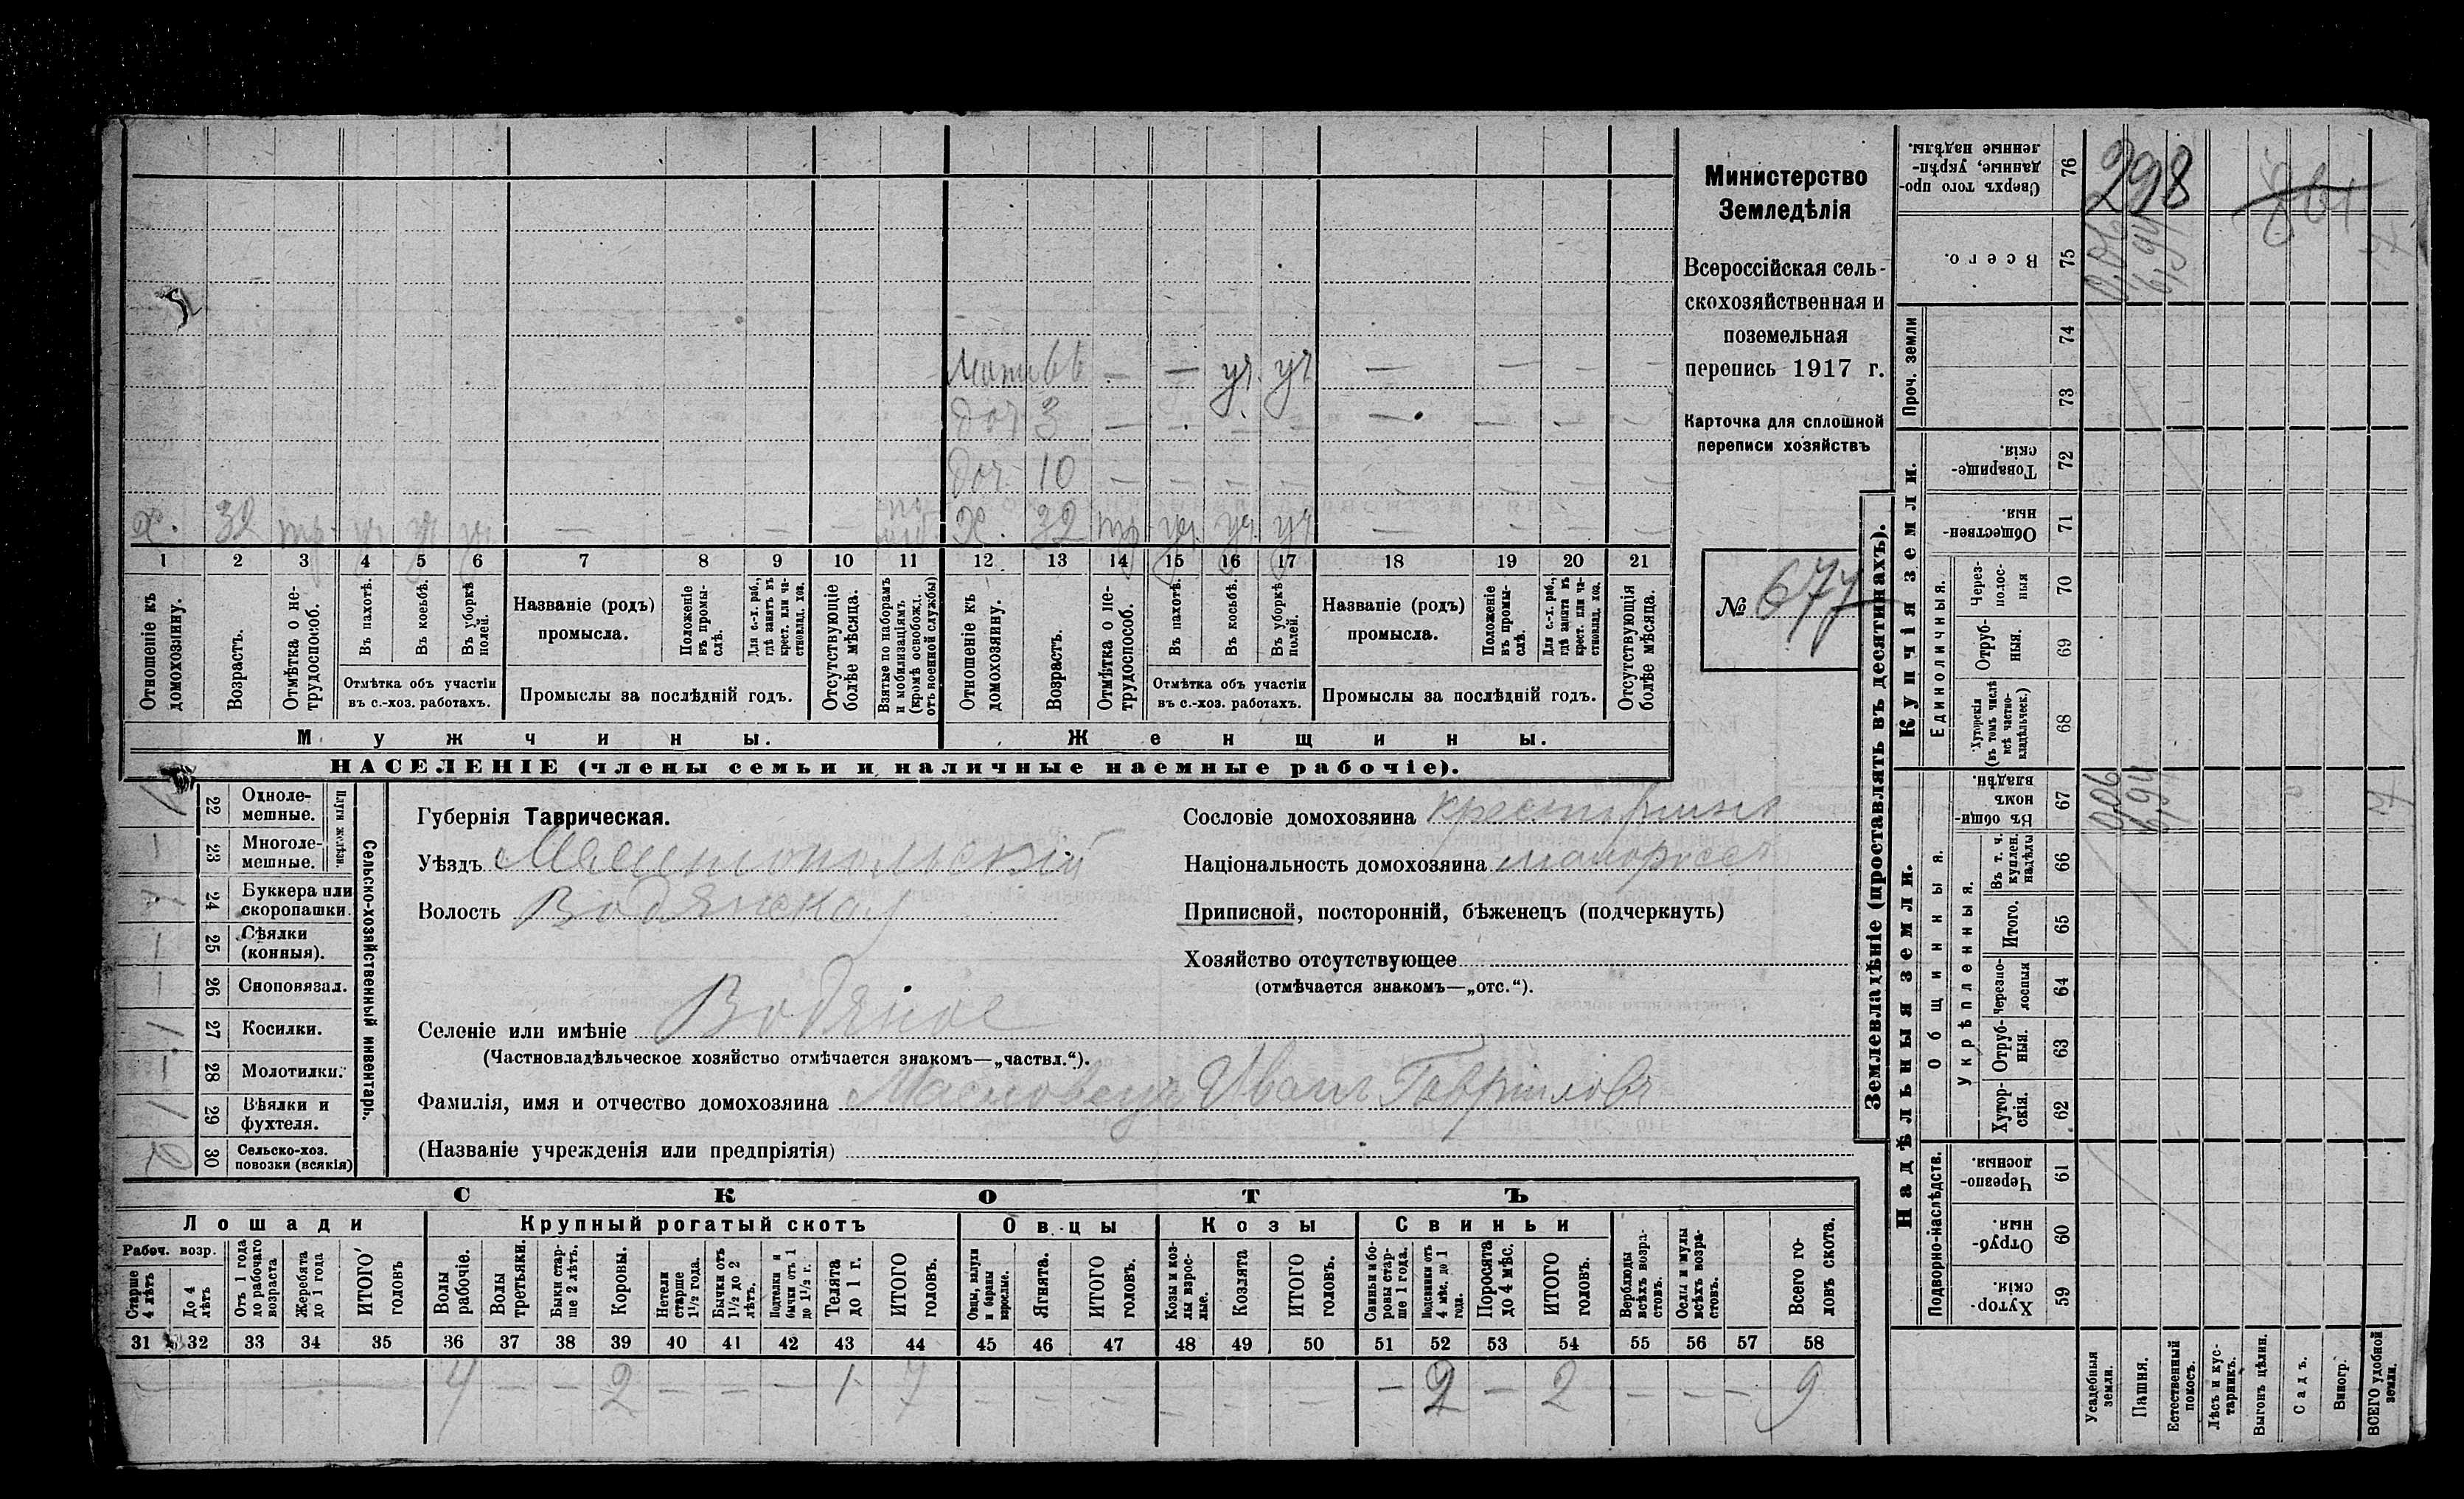 Министерство
Земледѣлія
Всероссійская сель-
скохозяйственная и
поземельная
перепись 1917 г.
Карточка для сплошной
переписи хозяйствъ
№ 677
Мать 66 — — уч. уч — — — —
Доч 3 — — — — — — — —
Доч. 10 — — — — — — — —
Х. 32 тр. уч уч уч — — — Х. 32 тр уч. уч. уч — — — —
1 2 3 4 5 6 7 8 9 10 11 12 13 14 15 16 17 18 19 20 21
Отношеніе къ домохозяину.
Возрастъ.
Отмѣтка о не-трудоспособ.
Въ пахотѣ.
Въ косьбѣ.
Въ уборкѣ полей.
Отмѣтка объ участіи
въ с.-хоз. работахъ.
Названіе (родъ)
промысла.
Положеніе въ промы-слѣ.
Для с.-х. раб., гдѣ занятъ въ крест. или ча-стновлад. хоз.
Промыслы за послѣдній годъ.
Отсутствующіе болѣе мѣсяца.
Взятые по наборамъ и мобилизаціямъ (кромѣ освобожд. отъ военной службы)
Отношеніе къ домохозяину.
Возрастъ.
Отмѣтка о не-трудоспособ.
Въ пахотѣ.
Въ косьбѣ.
Въ уборкѣ полей.
Отмѣтка объ участіи
въ с.-хоз. работахъ.
Названіе (родъ)
промысла.
Положеніе въ промы-слѣ.
Для с.-х. раб., гдѣ занята въ крест. или ча-стновлад. хоз.
Промыслы за послѣдній годъ.
Отсутствующія болѣе мѣсяца.
Мужчины. Женщины.
НАСЕЛЕНІЕ (члены семьи и наличные наемные рабочіе).
22 Одноле-мешные.
23 Многоле-мешные.
Плуги желѣзн.
24 Буккера или скоропашки.
25 Сѣялки (конныя).
26 Сноповязал.
27 Косилки. 1
28 Молотилки.
29 Вѣялки и фухтеля.
30 Сельско-хоз. повозки (всякія)
Сельско-хозяйственный инвентарь.
Губернія Таврическая.
Уѣздъ Мелитопольскій
Волость Водянская
Селеніе или имѣніе Водяное
(Частновладѣльческое хозяйство отмѣчается знакомъ—„частвл.“).
Фамилія, имя и отчество домохозяина Масловецъ Иванъ Гавріиловъ
(Названіе учрежденія или предпріятія)
Сословіе домохозяина крестьянинъ
Національность домохозяина малороссъ
Приписной, посторонній, бѣженец (подчеркнуть)
Хозяйство отсутствующее
(отмѣчается знакомъ—„отс.“).
СКОТЪ
Лошади Крупный рогатый скотъ Овцы Козы Свиньи
Рабоч. возр.
Старше 4 лѣтъ
До 4 лѣтъ
Отъ 1 года до рабочаго возраста
Жеребята до 1 года
ИТОГО головъ
Волы рабочіе.
Волы третьяки.
Быки стар-ше 2 лѣтъ.
Коровы.
Нетели старше 1½ года.
Бычки отъ 1½ до 2 лѣтъ.
Подтелки и бычки отъ 1 до 1½ г.
Телята до 1 г.
ИТОГО головъ.
Овцы, валухи и бараны взрослые.
Ягнята.
ИТОГО головъ.
Козы и коз-лы взрос-лые.
Козлята
ИТОГО головъ.
Свиньи и бо-ровы стар-ше 1 года.
Подсвинки отъ 4 мѣс. до 1 года.
Поросята до 4 мѣс.
ИТОГО головъ.
Верблюды всѣхъ возра-стовъ.
Ослы и мулы всѣхъ возра-стовъ.
Всего го-ловъ скота.
31 32 33 34 35 36 37 38 39 40 41 42 43 44 45 46 47 48 49 50 51 52 53 54 55 56 57 58
— — — — — 4 — — 2 — — — 1 7 — — — — — — — 2 — 2 — — — 9
Землевладѣніе (проставлять въ десятинахъ).
Сверхъ того про-данные, укрѣп-ленные надѣлы. 76 298
Всего. 75 0,06 6,94
Проч. земли 74 73
Купчія земли.
Товарище-скія. 72
Обществен-ныя. 71
Единоличныя.
Через-полос-ныя 70
Отруб-ныя. 69
Хуторскія (въ томъ числѣ всѣ частно-владѣльческ.) 68
Надѣльныя земли.
Общинныя.
Въ общин-номъ владѣн. 67 0,06 6,94
Укрѣпленныя.
Въ т. ч. куплен. надѣлы 66
Итого. 65
Черезпо-лосныя 64
Отруб-ныя. 63
Хутор-скія. 62
Подворно-наслѣдств.
Черезпо-лосныя. 61
Отруб-ныя. 60
Хутор-скія. 59
Усадебныя земли.
Пашня.
Естественный покосъ.
Лѣсъ и кус-тарникъ.
Выгонъ цѣлин.
Садъ.
Виногр.
ВСЕГО удобной земли.